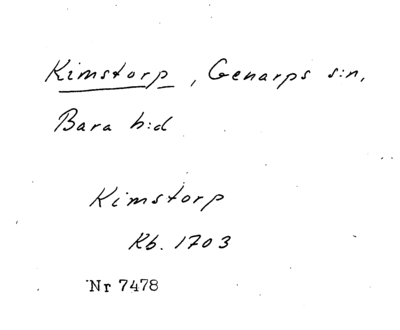 Kimstorp, Genarps s:n,
Bara h:d
Kimstorp
Kb. 1703
Nr 7478